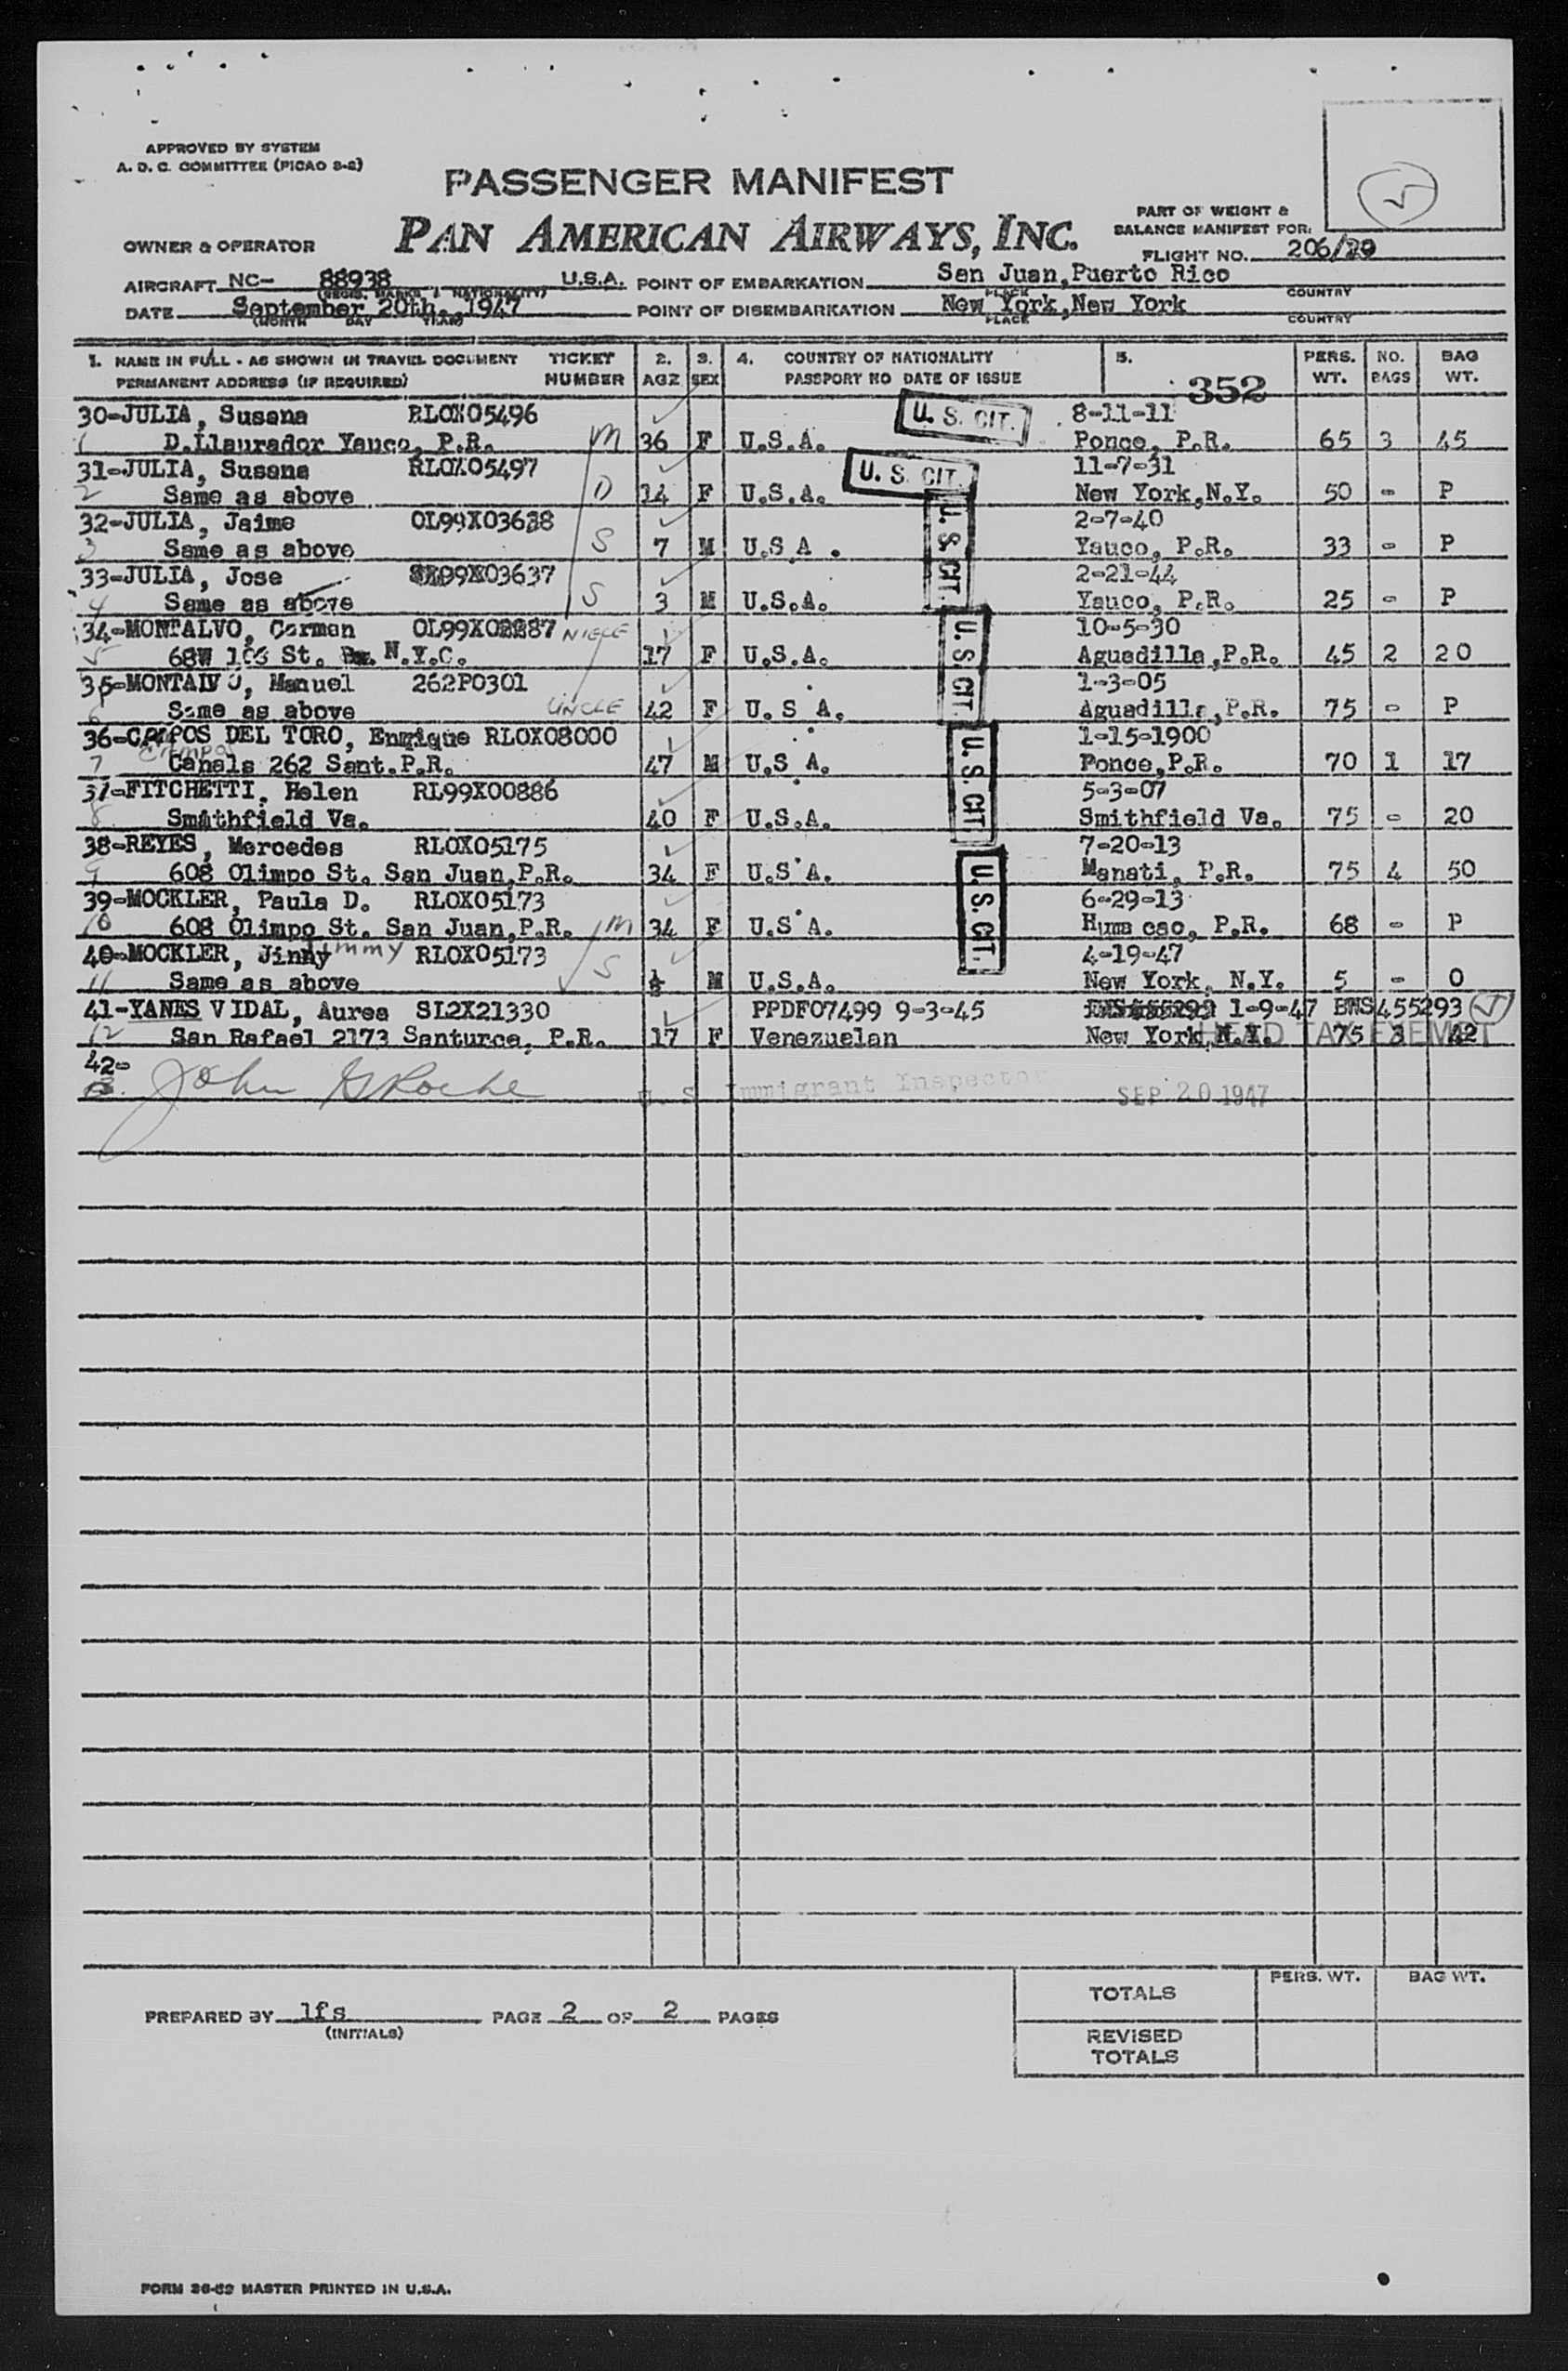 APPROVED BY SYSTEM
A. D. C. COMMITTEE (PICAO 3-2)
PASSENGER MANIFEST
PAN AMERICAN AIRWAYS, INC.
OWNER & OPERATOR
PART OF WEIGHT &
BALANCE MANIFEST FOR:
FLIGHT NO. 206/20
AIRCRAFT NC- 88938 U.S.A. POINT OF EMBARKATION San Juan, Puerto Rico
(REGIS. MARKS & NATIONALITY) PLACE COUNTRY
DATE September 20th., 1947 POINT OF DISEMBARKATION New York, New York
(MONTH DAY YEAR) PLACE COUNTRY
1. NAME IN FULL - AS SHOWN IN TRAVEL DOCUMENT TICKET 2. 3. 4. COUNTRY OF NATIONALITY 5. PERS. NO. BAG
PERMANENT ADDRESS (IF REQUIRED) NUMBER AGE SEX PASSPORT NO DATE OF ISSUE 352 WT. BAGS WT.
30-JULIA, Susana RLOX05496 U. S. CIT. 8-11-11
1 D.Llaurador Yauco, P.R. M 36 F U.S.A. Ponce, P.R. 65 3 45
31-JULIA, Susana RLOX05497 U. S. CIT. 11-7-31
2 Same as above D 14 F U.S.A. New York,N.Y. 50 - P
32-JULIA, Jaime OL99X03638 U. S. CIT. 2-7-40
3 Same as above S 7 M U.S A . Yauco, P.R. 33 - P
33-JULIA, Jose 99X03637 2-21-44
4 Same as above S 3 M U.S.A. Yauco, P.R. 25 - P
34-MONTALVO, Carmen NIECE U. S. CIT. 10-5-30
5 68W St. N.Y.C. 17 F U.S.A. Aguadilla,P.R. 45 2 20
35-MONTALVO, Manuel 262P0301 1-3-05
6 Same as above UNCLE 42 F U. S A. Aguadilla,P.R. 75 - P
36-CAMPOS DEL TORO, Enrique RLOX08000 U. S. CIT. 1-15-1900
Campos
7 Canals 262 Sant.P.R. 47 M U.S A. Ponce,P.R. 70 1 17
37-FITCHETTI, Helen RL99X00886 5-3-07
8 Smithfield Va. 40 F U.S.A. Smithfield Va. 75 - 20
38-REYES, Mercedes RLOX05175 U. S. CIT. 7-20-13
9 608 Olimpo St. San Juan,P.R. 34 F U.S A. Manati, P.R. 75 4 50
39-MOCKLER, Paula D. RLOX05173 6-29-13
10 608 Olimpo St. San Juan,P.R. M 34 F U.S A. Humacao, P.R. 68 - P
40-MOCKLER, Jinny immy RLOX05173 4-19-47
11 Same as above S M U.S.A. New York, N.Y. 5 - 0
41-YANES VIDAL, Aurea SL2X21330 PPDF07499 9-3-45 1-9-47 BWS455293
12 San Rafael 2173 Santurce, P.R. 17 F Venezuelan New York,N.Y. HEAD TAX EXEMPT 75 3 42
42-
John G Roche U. S. Immigrant Inspector SEP 20 1947
TOTALS PERS. WT. BAG WT.
PREPARED BY lfs PAGE 2 OF 2 PAGES
(INITIALS)
REVISED
TOTALS
FORM 36-62 MASTER PRINTED IN U.S.A.